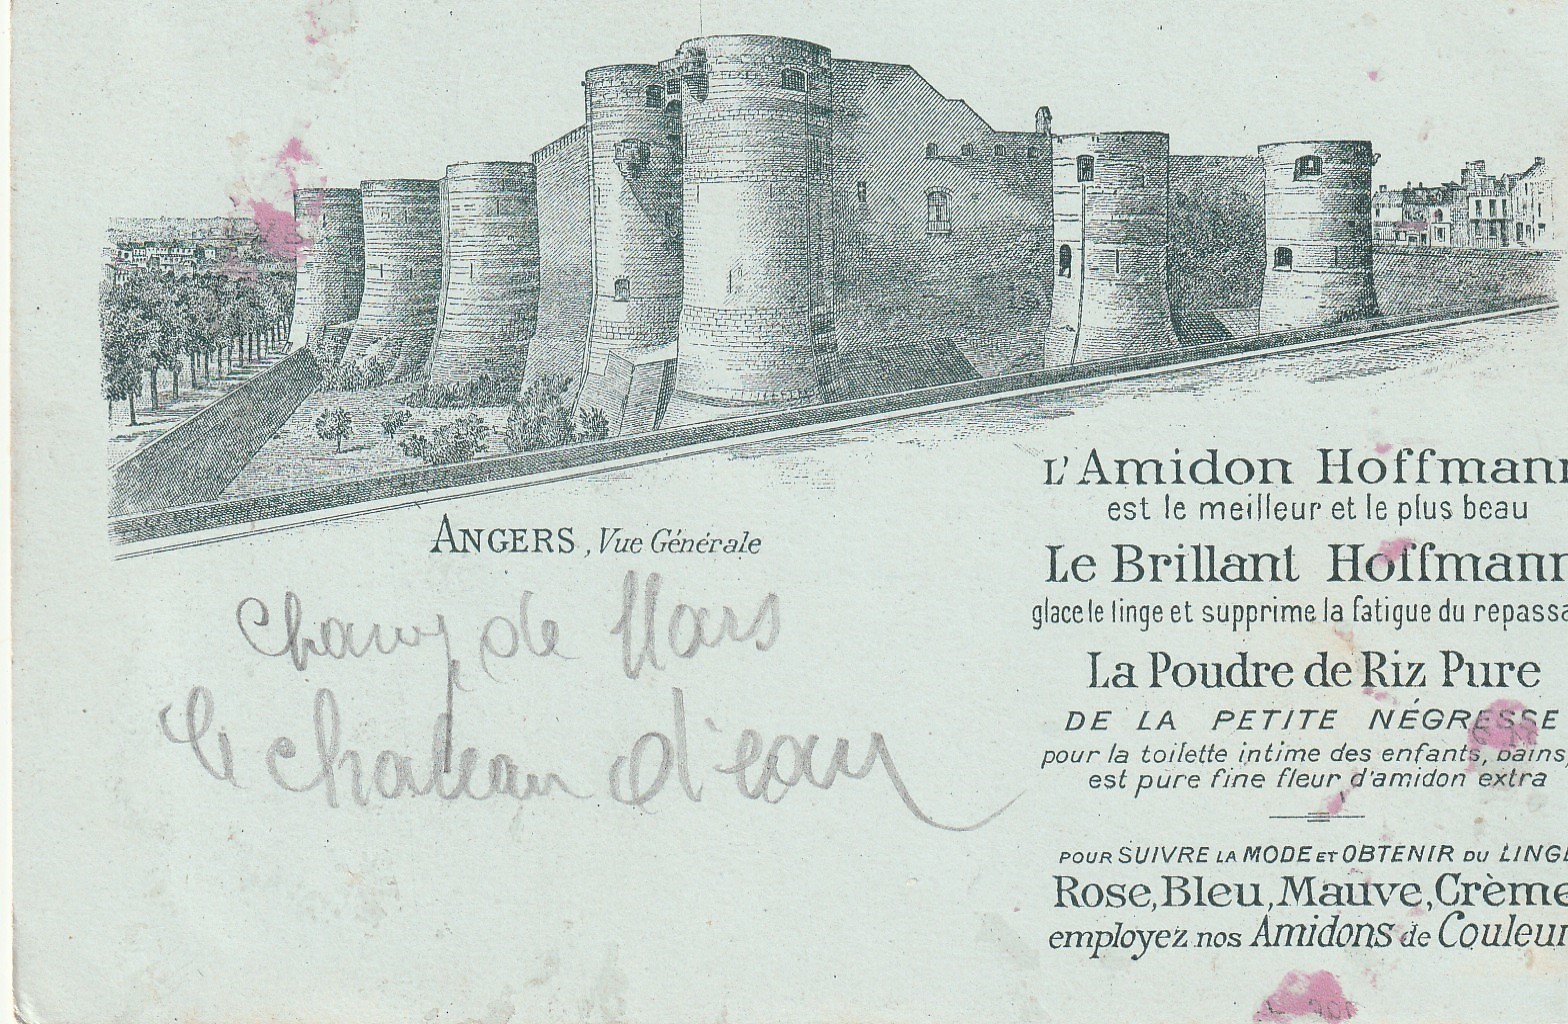 ANGERS, Vue Générale
champ de Mars
le chateau d'eau
L'Amidon Hoffmann
est le meilleur et le plus beau
Le Brillant Hoffmann
glace le linge et supprime la fatigue du repassa
La Poudre de Riz Pure
DE LA PETITE NÉGRESSE
pour la toilette intime des enfants, bains,
est pure fine fleur d'amidon extra
POUR SUIVRE LA MODE ET OBTENIR DU LINGE
Rose, Bleu, Mauve, Crème
employez nos Amidons de Couleur